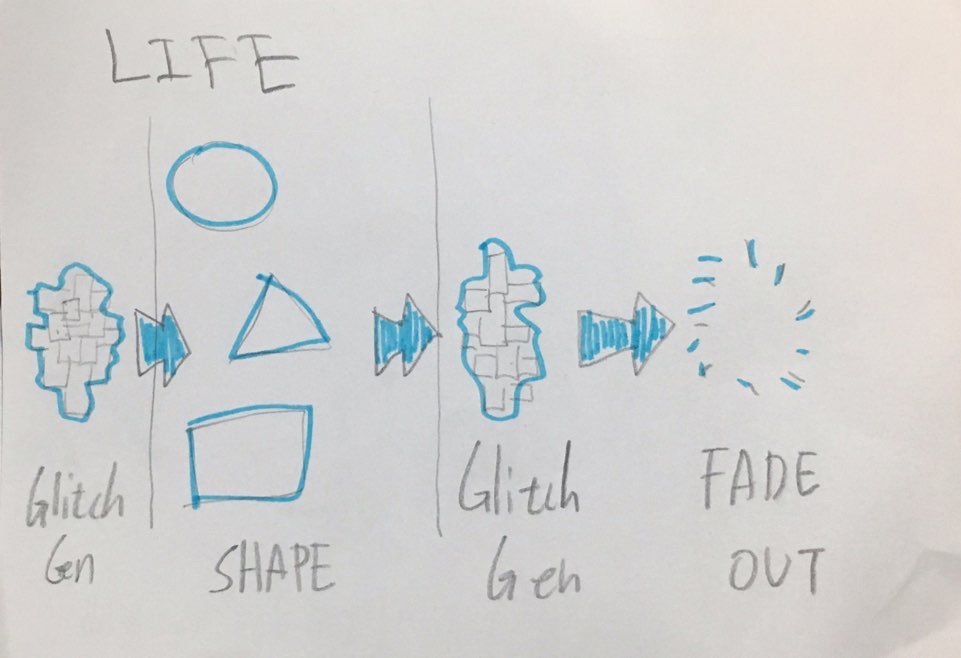 LIFE
Glitch
Gen
SHAPE
Glitch
Gen
FADE
OUT